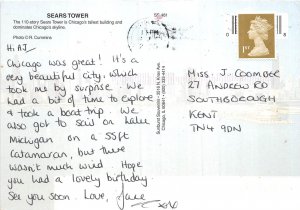 SEARS TOWER
The 110-story Sears Tower is Chicago's tallest building and
dominates Chicago's skyline.
Photo C.R. Cummins
Hi AJ
Chicago was great! It's a
very beautiful city, which
took me by surprise. We
had a bit of time to explore
& took a boat trip. We
also got to sail on Lake
Michigan on a 55ft
Catamaran, but there
wasn't much wind. Hope
you had a lovely birthday.
See you soon. Love, Jane
MISS. J. COOMBEE
27 ANDREW RD
SOUTHBOROUGH
KENT
TN4 9DN